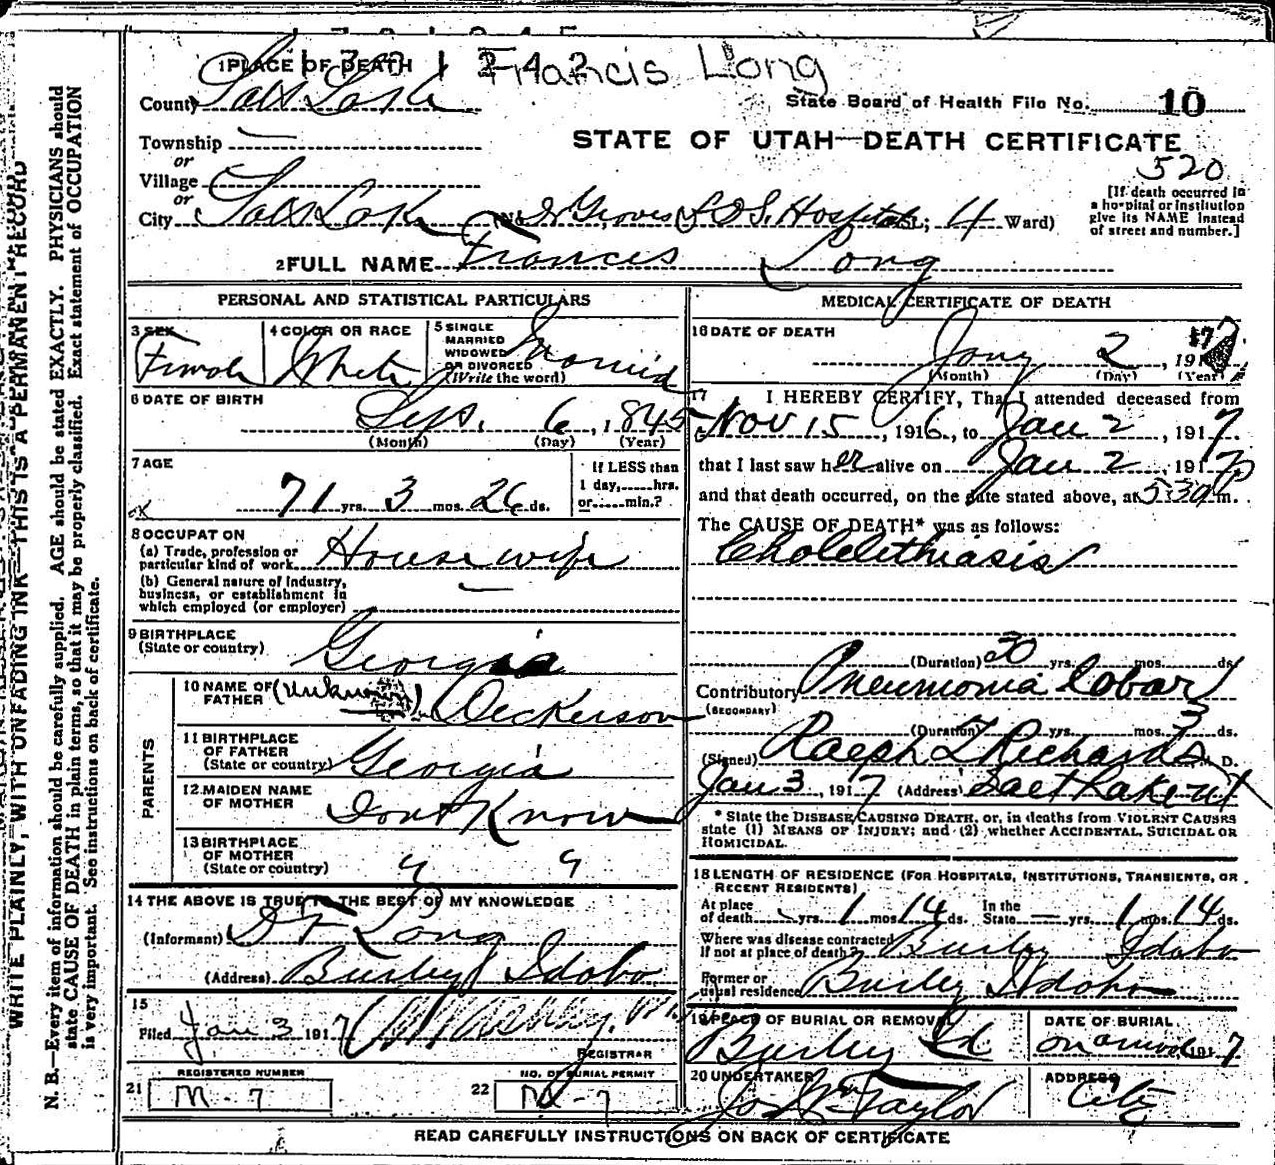 Francis Long
1 PLACE OF DEATH
County Salt Lake
State Board of Health File No. 10
Township —
STATE OF UTAH—DEATH CERTIFICATE
or
520
Village
or
City Salt Lake (No. Dr Groves L D S. Hospital St.; 4 Ward)
[If death occurred in
a hospital or institution
give its NAME instead
of street and number.]
2 FULL NAME Frances Long
PERSONAL AND STATISTICAL PARTICULARS
3 SEX
Female
4 COLOR OR RACE
White
5 SINGLE
MARRIED
WIDOWED
OR DIVORCED
(Write the word)
Married
6 DATE OF BIRTH
Sept. 6, 1845
(Month) (Day) (Year)
7 AGE
71 yrs. 3 mos. 26 ds.
If LESS than
1 day,......hrs.
or......min.?
8 OCCUPATION
(a) Trade, profession or
particular kind of work House wife
(b) General nature of industry,
business, or establishment in
which employed (or employer) —
9 BIRTHPLACE
(State or country) Georgia
PARENTS
10 NAME OF
FATHER (Unknown) Dickerson
11 BIRTHPLACE
OF FATHER
(State or country) Georgia
12 MAIDEN NAME
OF MOTHER Dont Know
13 BIRTHPLACE
OF MOTHER
(State or country)
14 THE ABOVE IS TRUE TO THE BEST OF MY KNOWLEDGE
(Informant) Long
(Address) Burley Idaho
15
Filed Jan 3 1917
REGISTRAR
REGISTERED NUMBER
21 M-7
NO. OF BURIAL PERMIT
22 M-7
MEDICAL CERTIFICATE OF DEATH
16 DATE OF DEATH
Jany 2, 1917
(Month) (Day) (Year)
17 I HEREBY CERTIFY, That I attended deceased from
Nov 15, 1916, to Jan 2, 1917.
that I last saw her alive on Jan 2, 1917
and that death occurred, on the date stated above, at 5:30 p m.
The CAUSE OF DEATH* was as follows:
Cholelithiasis
(Duration) 30 yrs. mos. ds.
Contributory Pneumonia lobar
(SECONDARY)
(Duration) yrs. mos. 3 ds.
(Signed) Ralph T Richards M. D.
Jan 3, 1917 (Address) Salt Lake Ut
* State the DISEASE CAUSING DEATH, or, in deaths from VIOLENT CAUSES
state (1) MEANS OF INJURY; and (2) whether ACCIDENTAL, SUICIDAL OR
HOMICIDAL.
18 LENGTH OF RESIDENCE (FOR HOSPITALS, INSTITUTIONS, TRANSIENTS, OR
RECENT RESIDENTS)
At place
of death — yrs. 1 mos. 14 ds. In the
State — yrs. 1 mos. 14 ds.
Where was disease contracted
if not at place of death? Burley Idaho
Former or
usual residence Burley Idaho
19 PLACE OF BURIAL OR REMOVAL
Burley Id
DATE OF BURIAL
on arrival 1917
20 UNDERTAKER
Jos Wm Taylor
ADDRESS
City
READ CAREFULLY INSTRUCTIONS ON BACK OF CERTIFICATE
WRITE PLAINLY, WITH UNFADING INK—THIS IS A PERMANENT RECORD
N. B.—Every item of information should be carefully supplied. AGE should be stated EXACTLY. PHYSICIANS should
state CAUSE OF DEATH in plain terms, so that it may be properly classified. Exact statement of OCCUPATION
is very important. See instructions on back of certificate.